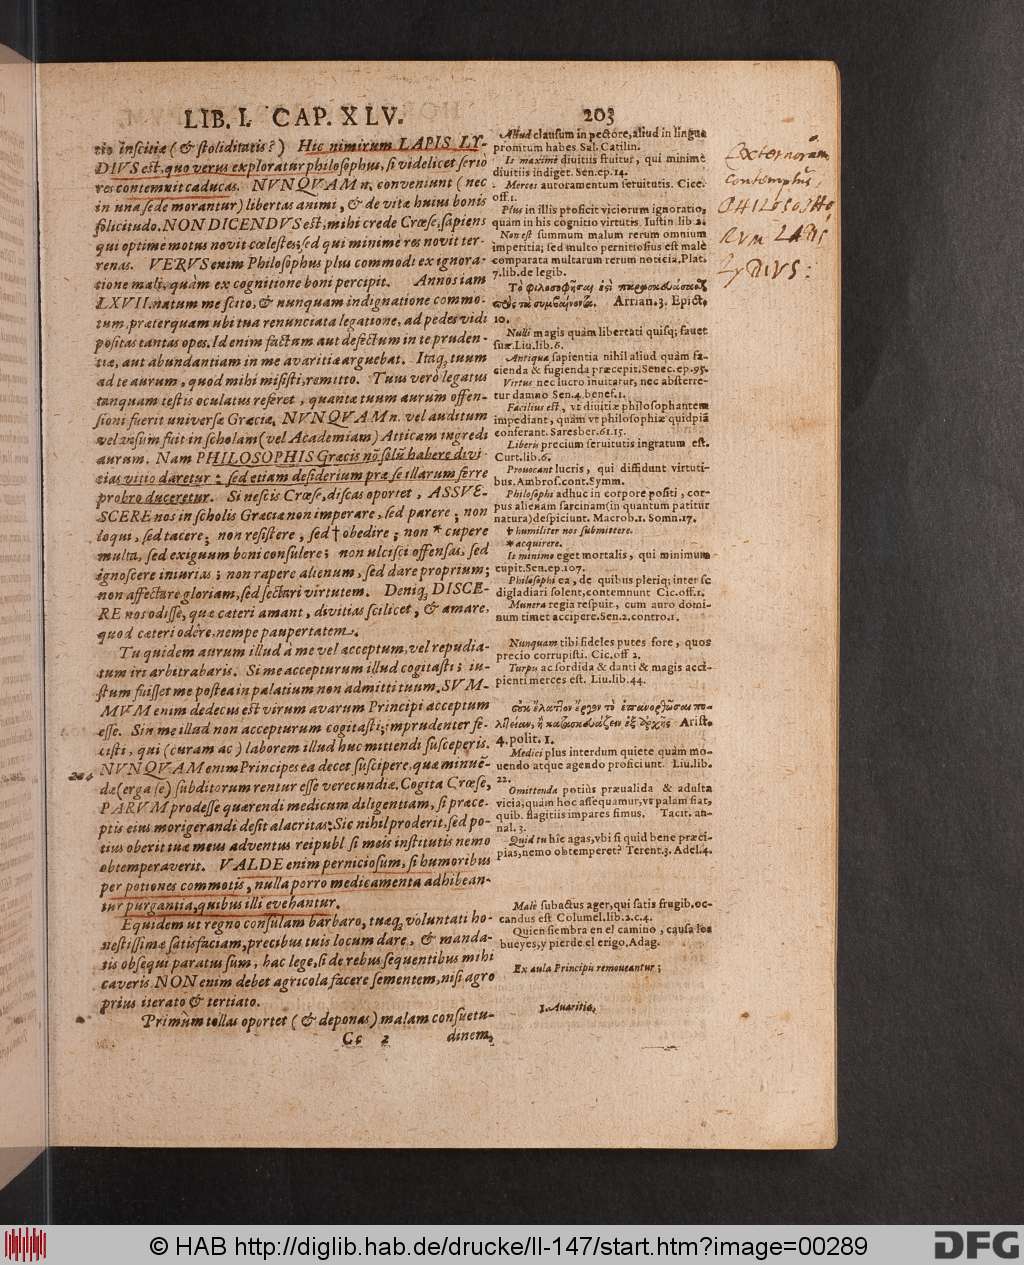 LIB. I. CAP. XLV.
203
tio inscitiæ (& stoliditatis?) Hic nimirum LAPIS LY-
DIVS est, quo verus exploratur philosophus, si videlicet serio
res contemnit caducas. NVNQVAM n. conveniunt (nec
in una sede morantur) libertas animi, & de vitæ huius bonis
sollicitudo. NON DICENDVS est, mihi crede Crœse, sapiens
qui optime motus novit cœlestes; sed qui minimè res novit ter-
renas. VERVS enim Philosophus plus commodi ex ignora-
tione mali, quàm ex cognitione boni percipit. Annos iam
LXVII. natum me scito, & nunquam indignatione commo-
tum, præterquam ubi tua renunciata legatione, ad pedes vidi
positas tantas opes. Id enim factum aut defectum in te pruden-
tiæ, aut abundantiam in me avaritiæ arguebat. Itaq; tuum
ad te aurum, quod mihi misisti, remitto. Tuus verò legatus
tanquam testis oculatus referet, quantæ tuum aurum offen-
sioni fuerit universæ Græciæ, NVNQVAM n. vel auditum
vel visum fuit in scholam (vel Academiam) Atticam ingredi
aurum. Nam PHILOSOPHIS Græcis nõ solũ habere divi-
tias vitio daretur: sed etiam desiderium præ se illarum ferre
probro duceretur. Si nescis Crœse, discas oportet, ASSVE-
SCERE nos in scholis Græciæ non imperare, sed parere; non
loqui, sed tacere; non resistere, sed † obedire; non * cupere
multa, sed exiguum boni consulere; non ulcisci offensas, sed
ignoscere iniurias; non rapere alienum, sed dare proprium;
non affectare gloriam, sed sectari virtutem. Deniq; DISCE-
RE nos odisse, quæ cæteri amant, divitias scilicet, & amare,
quod cæteri odêre, nempe paupertatem.
Tu quidem aurum illud à me vel acceptum, vel repudia-
tum iri arbitrabaris. Si me accepturum illud cogitasti; iu-
stum fuisset me postea in palatium non admitti tuum. SVM-
MVM enim dedecus est virum avarum Principi acceptum
esse. Sin me illud non accepturum cogitasti; imprudenter fe-
cisti, qui (curam ac) laborem illud huc mittendi susceperis.
NVNQVAM enim Principes ea decet suscipere, quæ minuẽ-
da (erga se) subditorum rentur esse verecundiæ. Cogita Crœse,
PARVM prodesse quærendi medicum diligentiam, si præce-
ptis eius morigerandi desit alacritas: Sic nihil proderit, sed po-
tius oberit tuæ meus adventus reipubl. si meis institutis nemo
obtemperaverit. VALDE enim perniciosum, si humoribus
per potiones commotis, nulla porro medicamenta adhibean-
tur purgantia, quibus illi evehantur.
Equidem ut regno consulam barbaro, tuæq; voluntati ho-
nestissimæ satisfaciam, precibus tuis locum dare, & manda-
tis obsequi paratus sum, hac lege, si de rebus sequentibus mihi
caveris. NON enim debet agricola facere sementem, nisi agro
prius iterato & tertiato.
Primùm tollas oportet (& deponas) malam consuetu-
Cc 2
dinem,
204
Aliud clausum in pectore, aliud in lingua
promtum habes. Sal. Catilin.
Is maximè divitiis fruitur, qui minimè
divitiis indiget. Sen. ep. 14.
Merces autoramentum servitutis. Cic.
off. 1.
Plus in illis proficit viciorum ignoratio,
quàm in his cognitio virtutis. Iustin. lib. 2.
Non est summum malum rerum omnium
imperitia; sed multo pernitiosius est malè
comparata multarum rerum noticia. Plat.
7. lib. de legib.
Arrian. 3. Epict.
10.
Nulli magis quàm libertati quisq; favet
suæ. Liu. lib. 6.
Antiqua sapientia nihil aliud quàm fa-
cienda & fugienda præcepit. Senec. ep. 95.
Virtus nec lucro invitatur, nec absterre-
tur damno Sen. 4. benef. 1.
Facilius est, vt divitiæ philosophantem
impediant, quàm vt philosophiæ quidpiã
conferant. Saresber. 61. 15.
Liberis precium servitutis ingratum est.
Curt. lib. 6.
Provocant lucris, qui diffidunt virtuti-
bus. Ambros. cont. Symm.
Philosophi adhuc in corpore positi, cor-
pus alienam sarcinam (in quantum patitur
natura) despiciunt. Macrob. 1. Somn. 17.
† humiliter nos submittere.
* acquirere.
Is minimo eget mortalis, qui minimum
cupit. Sen. ep. 107.
Philosophi ea, de quibus pleriq; inter se
digladiari solent, contemnunt Cic. off. 1.
Munera regia respuit, cum auro domi-
num timet accipere. Sen. 2. contro. 1.
Nunquam tibi fideles putes fore, quos
precio corrupisti. Cic. off 2.
Turpis ac sordida & danti & magis acci-
pienti merces est. Liu. lib. 44.
Arist.
4. polit. 1.
Medici plus interdum quiete quàm mo-
vendo atque agendo proficiunt. Liu. lib.
22.
Omittenda potiùs prævalida & adulta
vicia; quàm hoc assequamur, vt palam fiat,
quib. flagitiis impares simus. Tacit. an-
nal. 3.
Quid tu hîc agas, vbi si quid bene præci-
pias, nemo obtemperet? Terent. 3. Adel. 4.
Malè subactus ager, qui satis frugib. oc-
candus est Columel. lib. 2. c. 4.
Quien siembra en el camino, cansa los
bueyes, y pierde el trigo. Adag.
Ex aula Principis removeantur;
1. Avaritia,
Externorum
contemptus,
PHILOSOPHO
RVM LAPIS
LYDIVS:
© HAB http://diglib.hab.de/drucke/ll-147/start.htm?image=00289
DFG